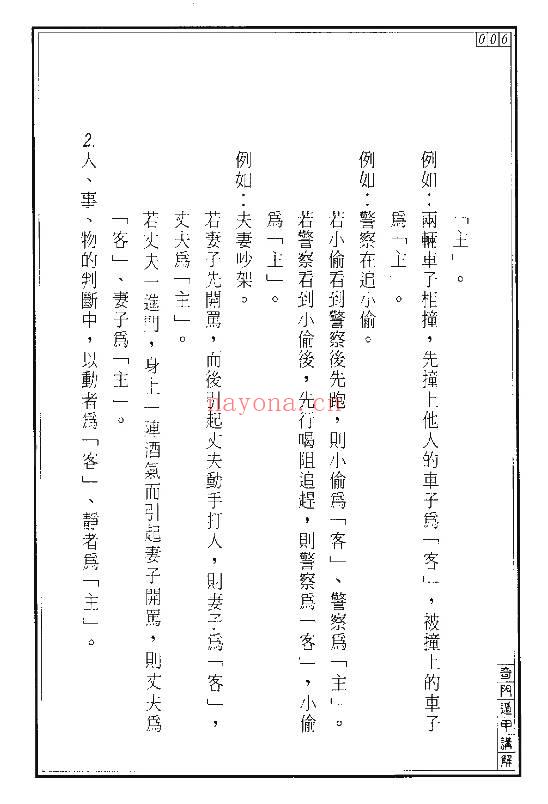 006
「主」。
例如：兩輛車子相撞，先撞上他人的車子爲「客」，被撞上的車子
爲「主」。
例如：警察在追小偷。
若小偷看到警察後先跑，則小偷爲「客」、警察爲「主」。
若警察看到小偷後，先行喝阻追趕，則警察爲「客」，小偷
爲「主」。
例如：夫妻吵架。
若妻子先開罵，而後引起丈夫動手打人，則妻子爲「客」，
丈夫爲「主」。
若丈夫一進門，身上一陣酒氣而引起妻子開罵，則丈夫爲
「客」、妻子爲「主」。
2.人、事、物的判斷中，以動者爲「客」、靜者爲「主」。
奇門遁甲講解
nayona.cn